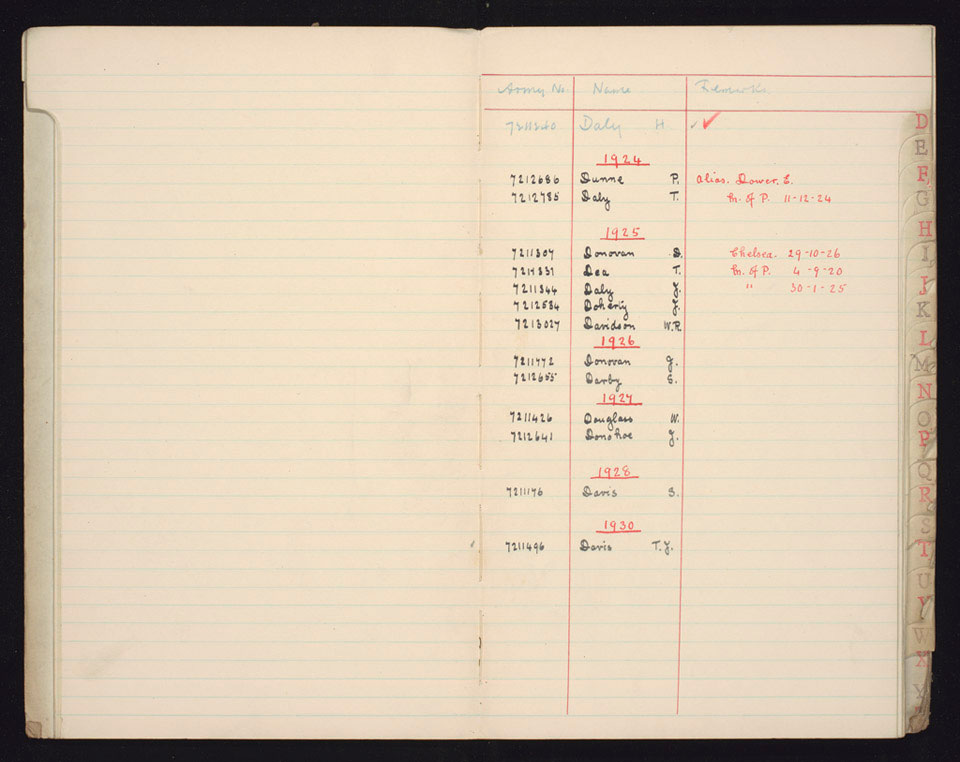 Army No. Name Remarks
7211260 Daly H.
1924
7212686 Dunne P. Alias. Dower, E.
7212785 Daly T. M. of P. 11-12-24
1925
7211307 Donovan D. Chelsea. 29-10-26
Dea T. M. of P. 4-9-20
7211344 Daly J. " 30-1-25
7212584 Doherty J.
7213027 Davidson W.R.
1926
7211472 Donovan J.
7212655 Darby S.
1927
7211426 Douglass W.
7212641 Donohoe J.
1928
7211176 Davis S.
1930
7211496 Davis T.J.
D
E
F
G
H
I
J
K
L
M
N
O
P
Q
R
S
T
U
V
W
X
Y